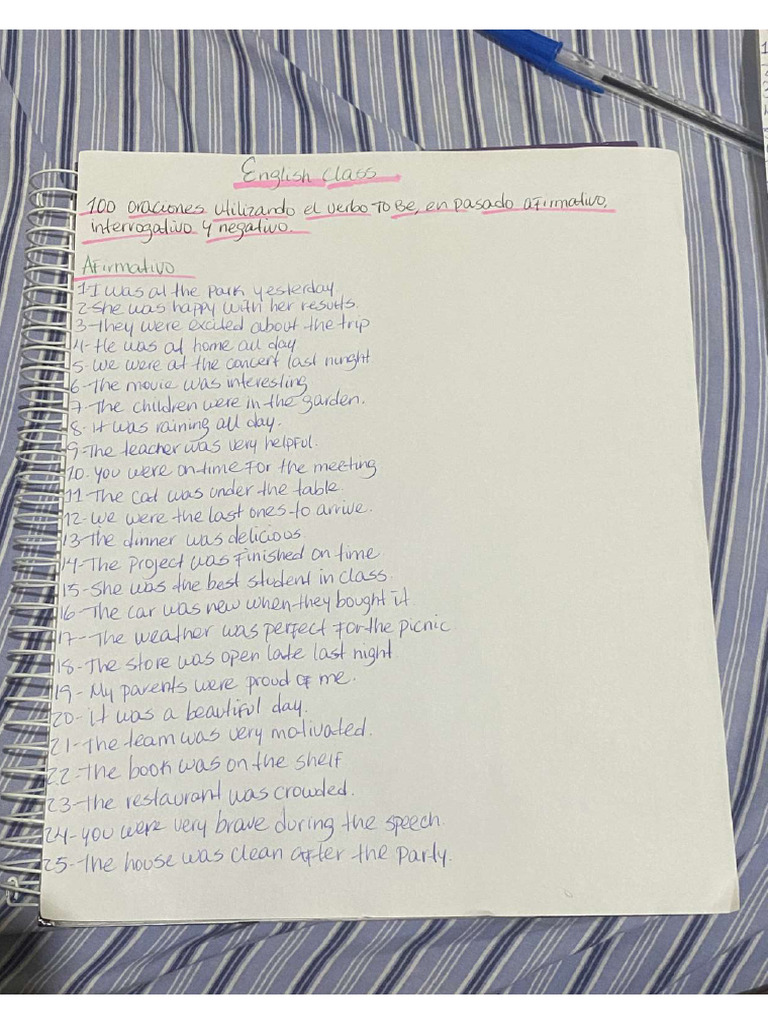 English class
100 oraciones utilizando el verbo TO Be, en pasado afirmativo,
interrogativo y negativo.
Afirmativo
1-I was at the park yesterday.
2-she was happy with her results.
3-they were excited about the trip
4-He was at home all day
5-we were at the concert last nunght
6-The movie was interesting
7-The children were in the garden.
8-it was raining all day.
9-The teacher was very helpful.
10.you were on time for the meeting
11-The cat was under the table.
12-we were the last ones to arrive.
13-the dinner was delicious.
14-The project was finished on time
15-She was the best student in class.
16-The car was new when they bought it
17-The weather was perfect for the picnic
18-The store was open late last night.
19-My parents were proud of me.
20-it was a beautiful day.
21-The team was very motivated.
22-the book was on the shelf
23-the restaurant was crowded.
24-you were very brave during the speech.
25-the house was clean after the party.